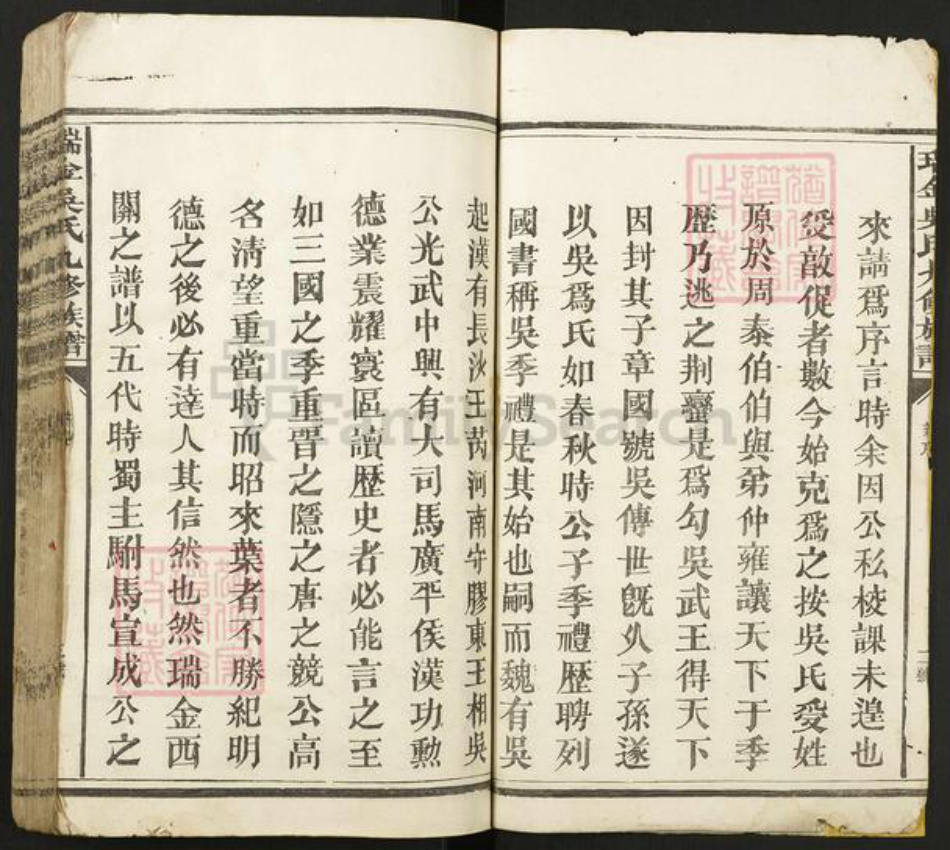 瑞金吳氏九修族譜
來請爲序言時余因公私棱課未遑也
受敵促者數今始克爲之按吳氏受姓
原於周泰伯伯與弟仲雍讓天下于季
歷乃逃之荆蠻是爲勾吳武王得天下
因封其子章國號吳傳世旣久子孫遂
以吳爲氏如春秋時公子季禮歷聘列
國書稱吳季禮是其始也嗣而魏有吳
起漢有長沙王芮河南守膠東王相吳
公光武中興有大司馬廣平侯漢功勳
德業震耀寰區讀歷史者必能言之至
如三國之季重晋之隱之唐之競公高
名淸望重當時而昭來葉者不勝紀明
德之後必有達人其信然也然瑞金西
關之譜以五代時蜀主駙馬宣成公之
瑞金吳氏九修族譜
FamilySearch